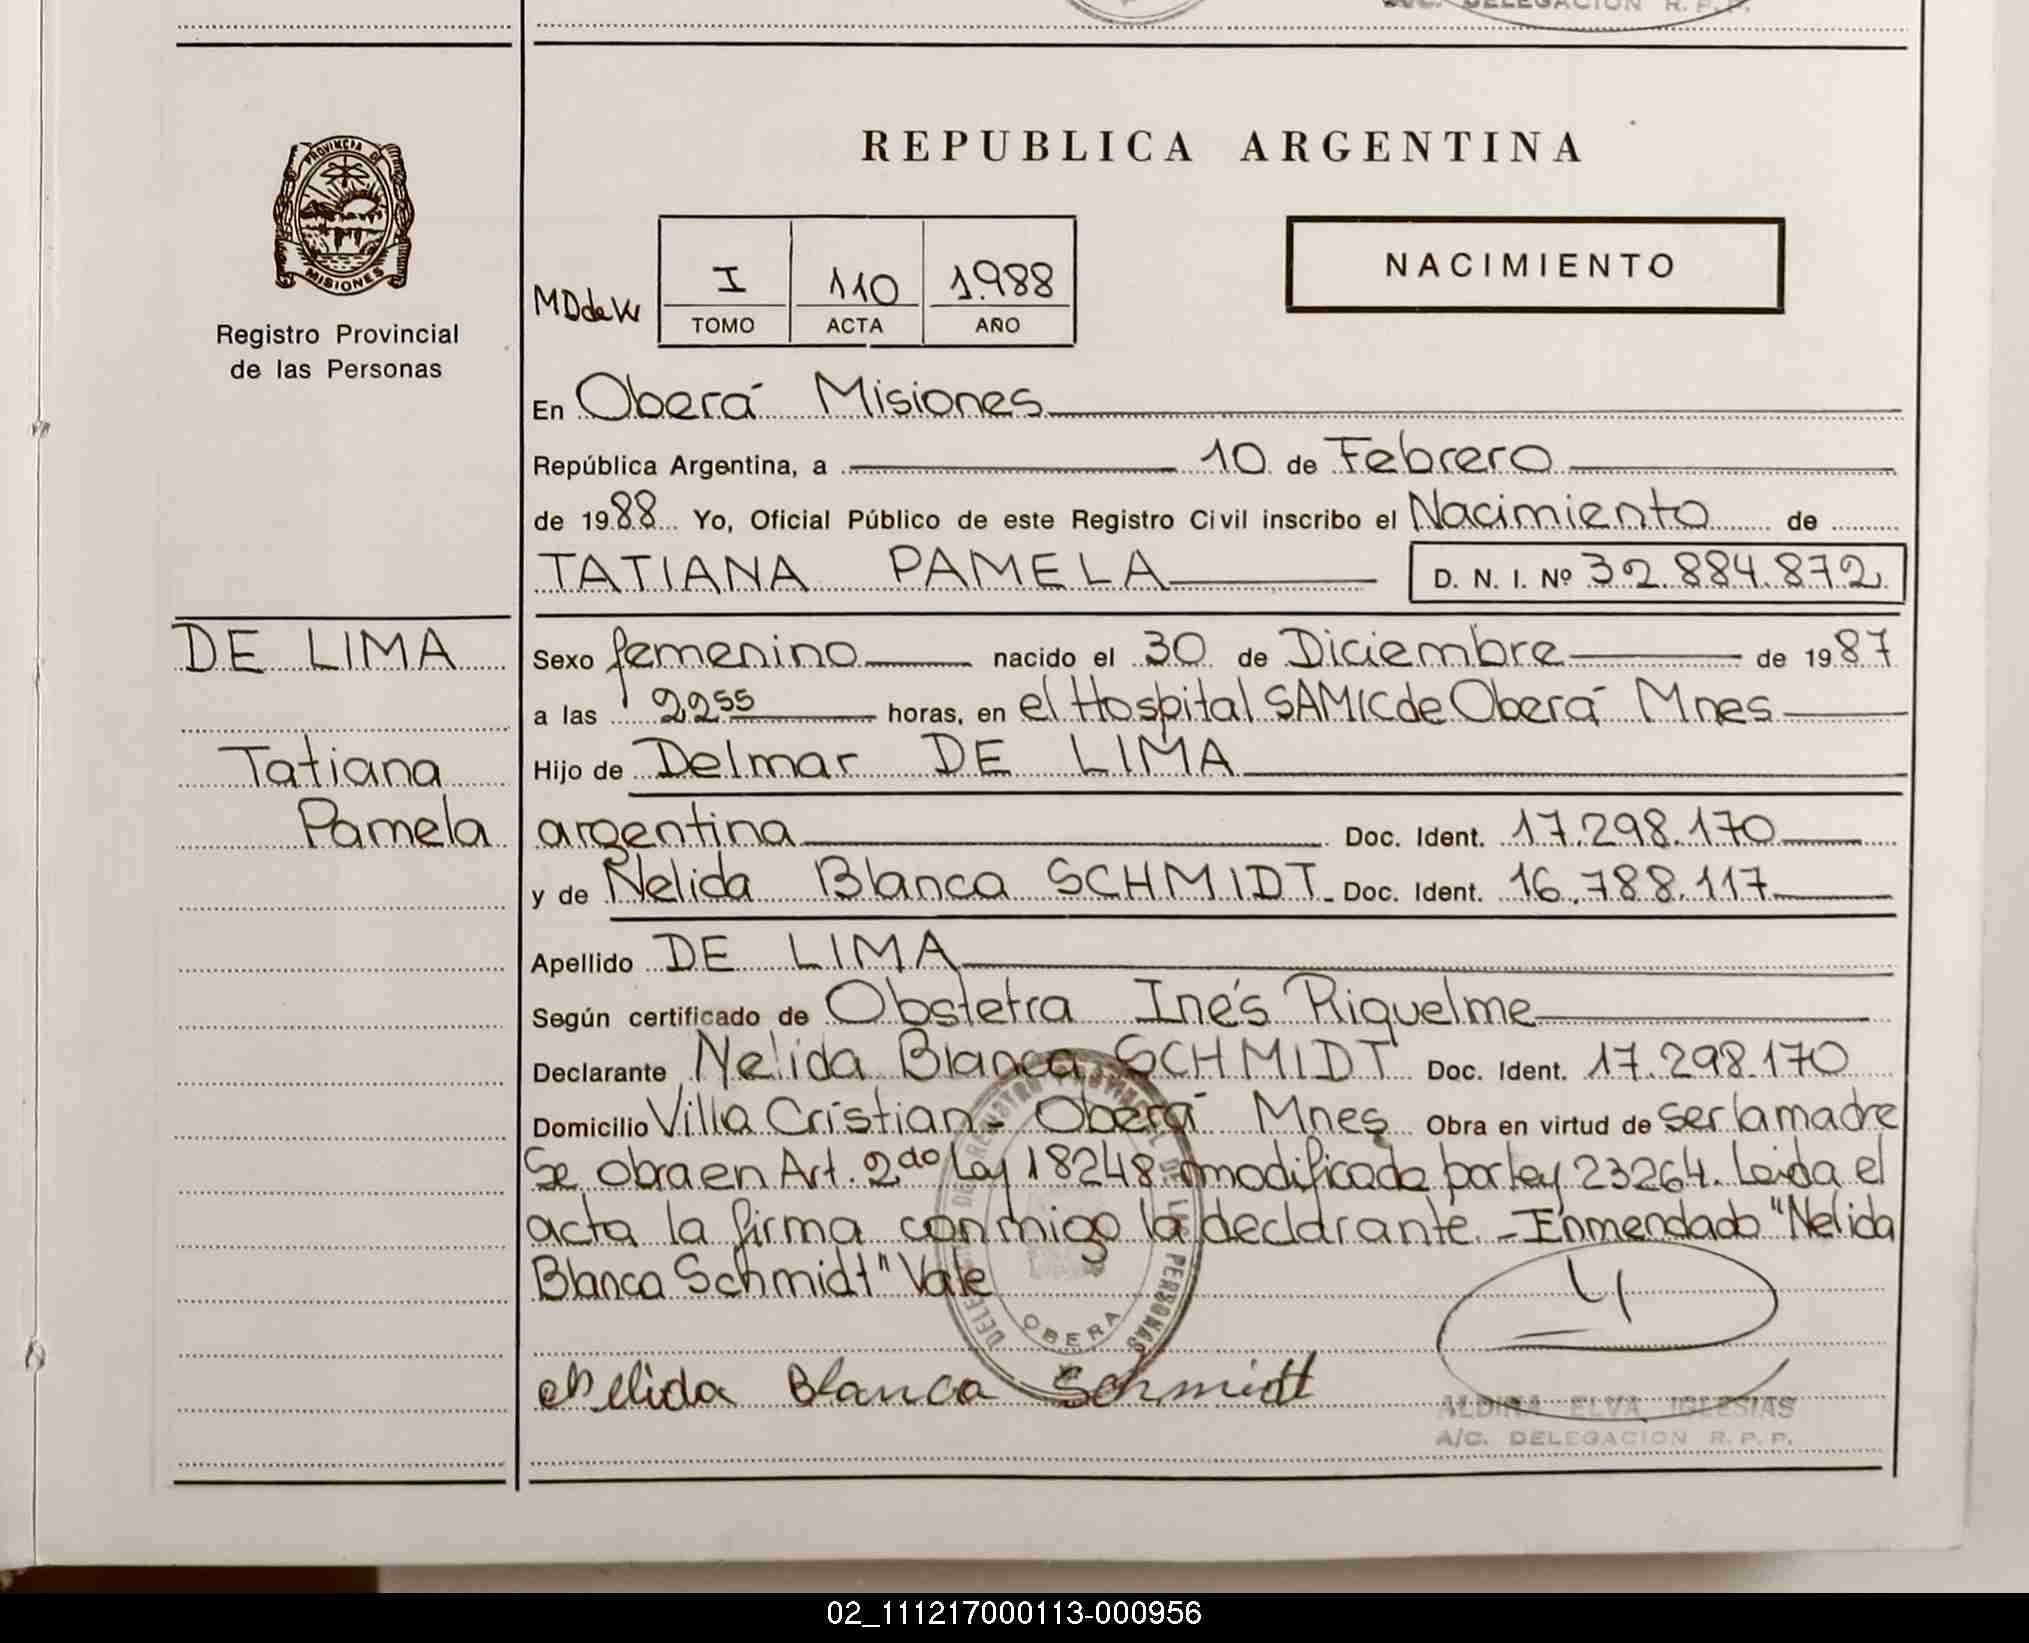 DELEGACION R. P. P.
PROVINCIA DE
MISIONES
Registro Provincial
de las Personas
REPUBLICA ARGENTINA
NACIMIENTO
I 110 1.988
TOMO ACTA AÑO
En Oberá Misiones
República Argentina, a 10 de Febrero
de 1988 Yo, Oficial Público de este Registro Civil inscribo el Nacimiento de
TATIANA PAMELA D. N. I. Nº 32.884.872
DE LIMA
Tatiana
Pamela
Sexo femenino nacido el 30 de Diciembre de 1987
a las 22 55 horas, en el Hospital SAMIC de Oberá Mnes
Hijo de Delmar DE LIMA
argentina Doc. Ident. 17.298.170
y de Nelida Blanca SCHMIDT Doc. Ident. 16.788.117
Apellido DE LIMA
Según certificado de Obstetra Inés Riquelme
Declarante Nelida Blanca SCHMIDT Doc. Ident. 17.298.170
Domicilio Villa Cristian - Oberá Mnes Obra en virtud de ser la madre
Se obra en Art. 2do Ley 18248 modificada por ley 23264. Leida el
acta la firma conmigo la declarante. - Enmendado "Nelida
Blanca Schmidt" Vale
OBERA
Nelida Blanca Schmidt
ALDINA ELVA IGLESIAS
A/C. DELEGACION R. P. P.
02_111217000113-000956